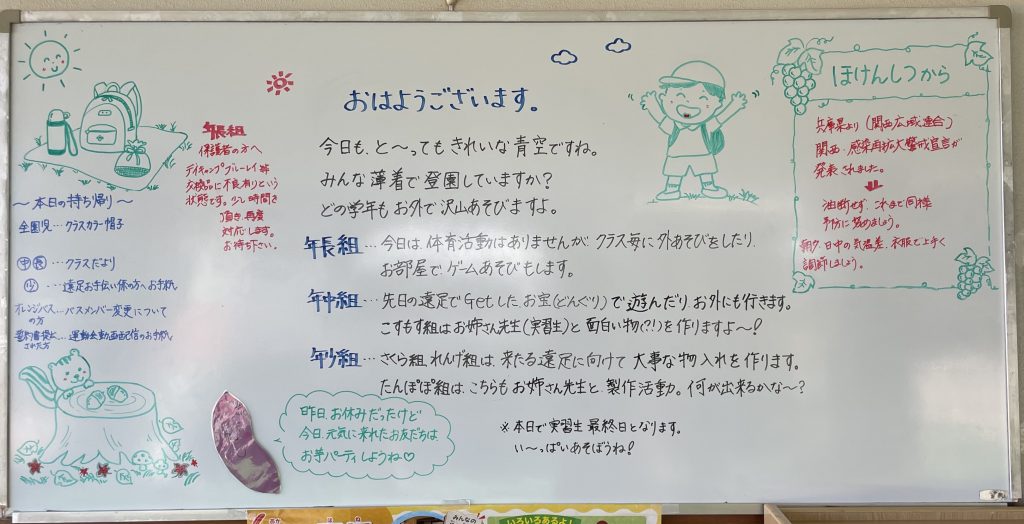 おはようございます。
今日も、と～ってもきれいな青空ですね。
みんな薄着で登園していますか?
どの学年もお外で沢山あそびますよ。
年長組…今日は、体育活動はありませんが、クラス毎に外あそびをしたり、
お部屋で、ゲームあそびもします。
年中組…先日の遠足でGetしたお宝(どんぐり)で遊んだりお外にも行きます。
こすもす組はお姉さん先生(実習生)と面白い物(?!)を作りますよ～!
年少組…さくら組、れんげ組は、来たる遠足に向けて大事な物入れを作ります。
たんぽぽ組は、こちらもお姉さん先生と、製作活動。何が出来るかな～?
※本日で実習生最終日となります。
い～っぱいあそぼうね!
昨日、お休みだったけど
今日、元気に来れたお友だちは
お芋パーティしようね♡
年長組
保護者の方へ
デイキャンプブルーレイ
交換品に不良有りという
状態です。少し時間を
頂き、再度
対応します。
お待ち下さい。
～本日の持ち帰り～
全園児…クラスカラー帽子
中 長…クラスだより
少…遠足お手伝い係の方へお手紙
オレンジバス…バスメンバー変更について
の方
誓約書提出…運動会動画配信のお手紙
された方
ほけんしつから
兵庫県より(関西広域連合)
関西・感染再拡大警戒宣言が
発表されました。
油断せず、これまで同様
予防に努めましょう。
朝夕、日中の気温差、衣服で上手く
調節しましょう。
みんなの
いろいろあるよ!